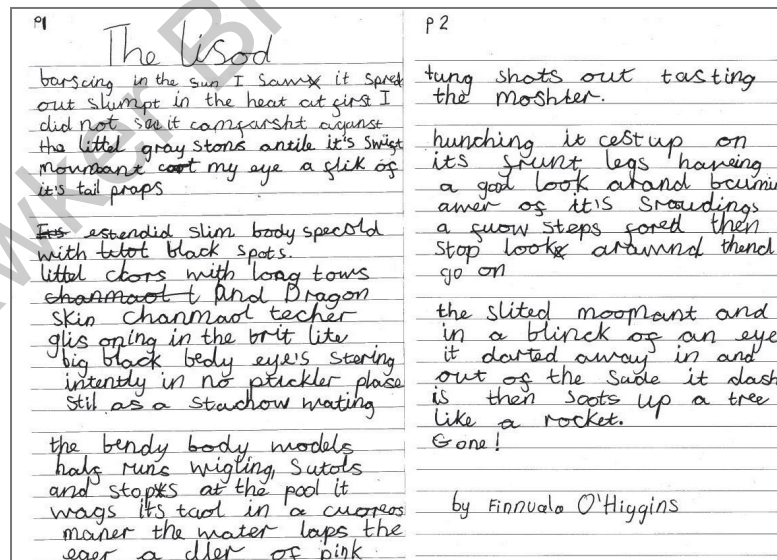 P1
The Lisod
barscing in the sun I saw it spred
out slumpt in the heat at first I
did not see it comfarsht aganst
the littel gray stons antile it's swift
moumant cot my eye a flik of
it's tail praps
Its estendid slim body specold
with black spots.
littel clors with long tows
chanmaol t And Dragon
skin chanmaol techer
glis oning in the brit lite
big black bedy eye's stering
intently in no ptickler plase
stil as a stachow wating
the bendy body models
half runs wigling, Sutols
and stops at the pool it
wags its taol in a cuoreos
maner the water laps the
eger a dler of pink
P 2
tung shots out tasting
the moshter.
hunching it cest up on
its frunt legs haveing
a good look arand bcumin
awer of it's sraudings
a fuow steps fored then
stop look arawnd thend
go on
the slited moopmant and
in a blinck of an eye
it darted away in and
out of the Sade it dash
is then soots up a tree
like a rocket.
Gone!
by Finnuala O'Higgins